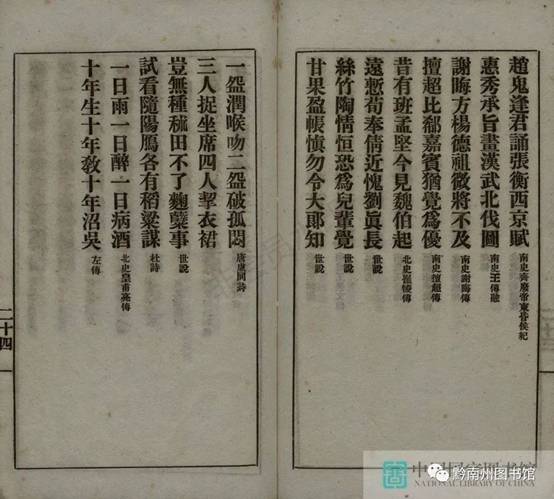 趙鬼逢君誦張衡西京賦 南史齊廢帝東昏侯紀
惠秀承旨畫漢武北伐圖 南史王融傳
謝晦方楊德祖微將不及 南史謝晦傳
擅超比郗嘉賓猶覺爲優 南史擅超傳
昔有班孟堅今見魏伯起 北史崔㥄傳
遠慙荀奉倩近愧劉眞長 世說
絲竹陶情恒恐爲兒輩覺 世說
甘果盈帳愼勿令大郞知 世說
一盌潤喉吻二盌破孤悶 唐盧同詩
三人捉坐席四人挈衣裙
豈無種秫田不了麴糵事 世說
試看隨陽鴈各有稻粱謀 杜詩
一日雨一日醉一日病酒 北史皇甫亮傳
十年生十年敎十年沼吳 左傳
二十四
中國國家圖書館
NATIONAL LIBRARY OF CHINA
黔南州图书馆